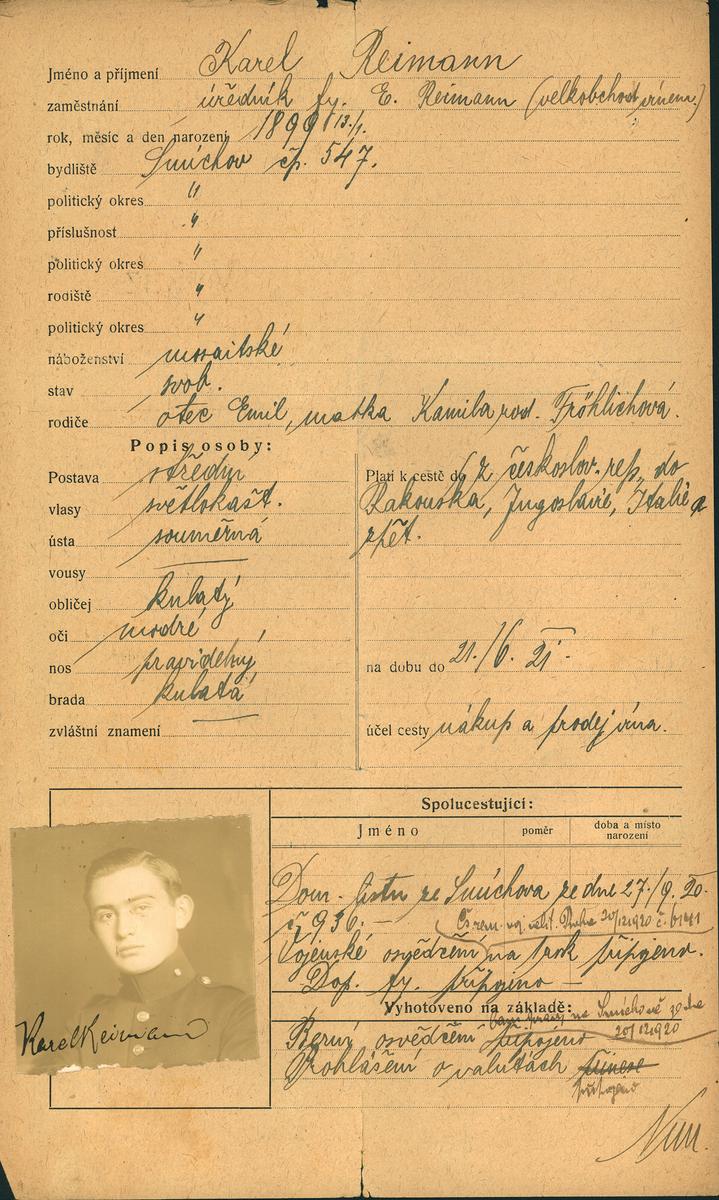 Jméno a příjmení Karel Reimann
zaměstnání úředník fy. E. Reimann (velkobchod vínem.)
rok, měsíc a den narození 1899 13./1.
bydliště Smíchov čp. 547.
politický okres "
příslušnost "
politický okres "
rodiště "
politický okres "
náboženství mosaitské
stav svob.
rodiče otec Emil, matka Kamila rod. Fröhlichová.
Popis osoby:
Postava střední
vlasy světlokašt.
ústa souměrná
vousy —
obličej kulatý
oči modré
nos pravidelný
brada kulatá
zvláštní znamení —
Platí k cestě do (z českoslov. rep. do
Rakouska, Jugoslavie, Italie a
zpět.
na dobu do 21./6. 21.
účel cesty nákup a prodej vína.
Spolucestující:
Jméno poměr doba a místo narození
Dom. listu ze Smíchova ze dne 27./9. 20.
č 936. —
Praha 20/12 1920 č.
Vojenské osvědčení na 1 rok připojeno.
Dop. fy. připojeno —
Vyhotoveno na základě:
na Smíchově ze dne
20/12 1920
Berní osvědčení připojeno
Prohlášení o valutách přinese
připojeno
Karel Reimann